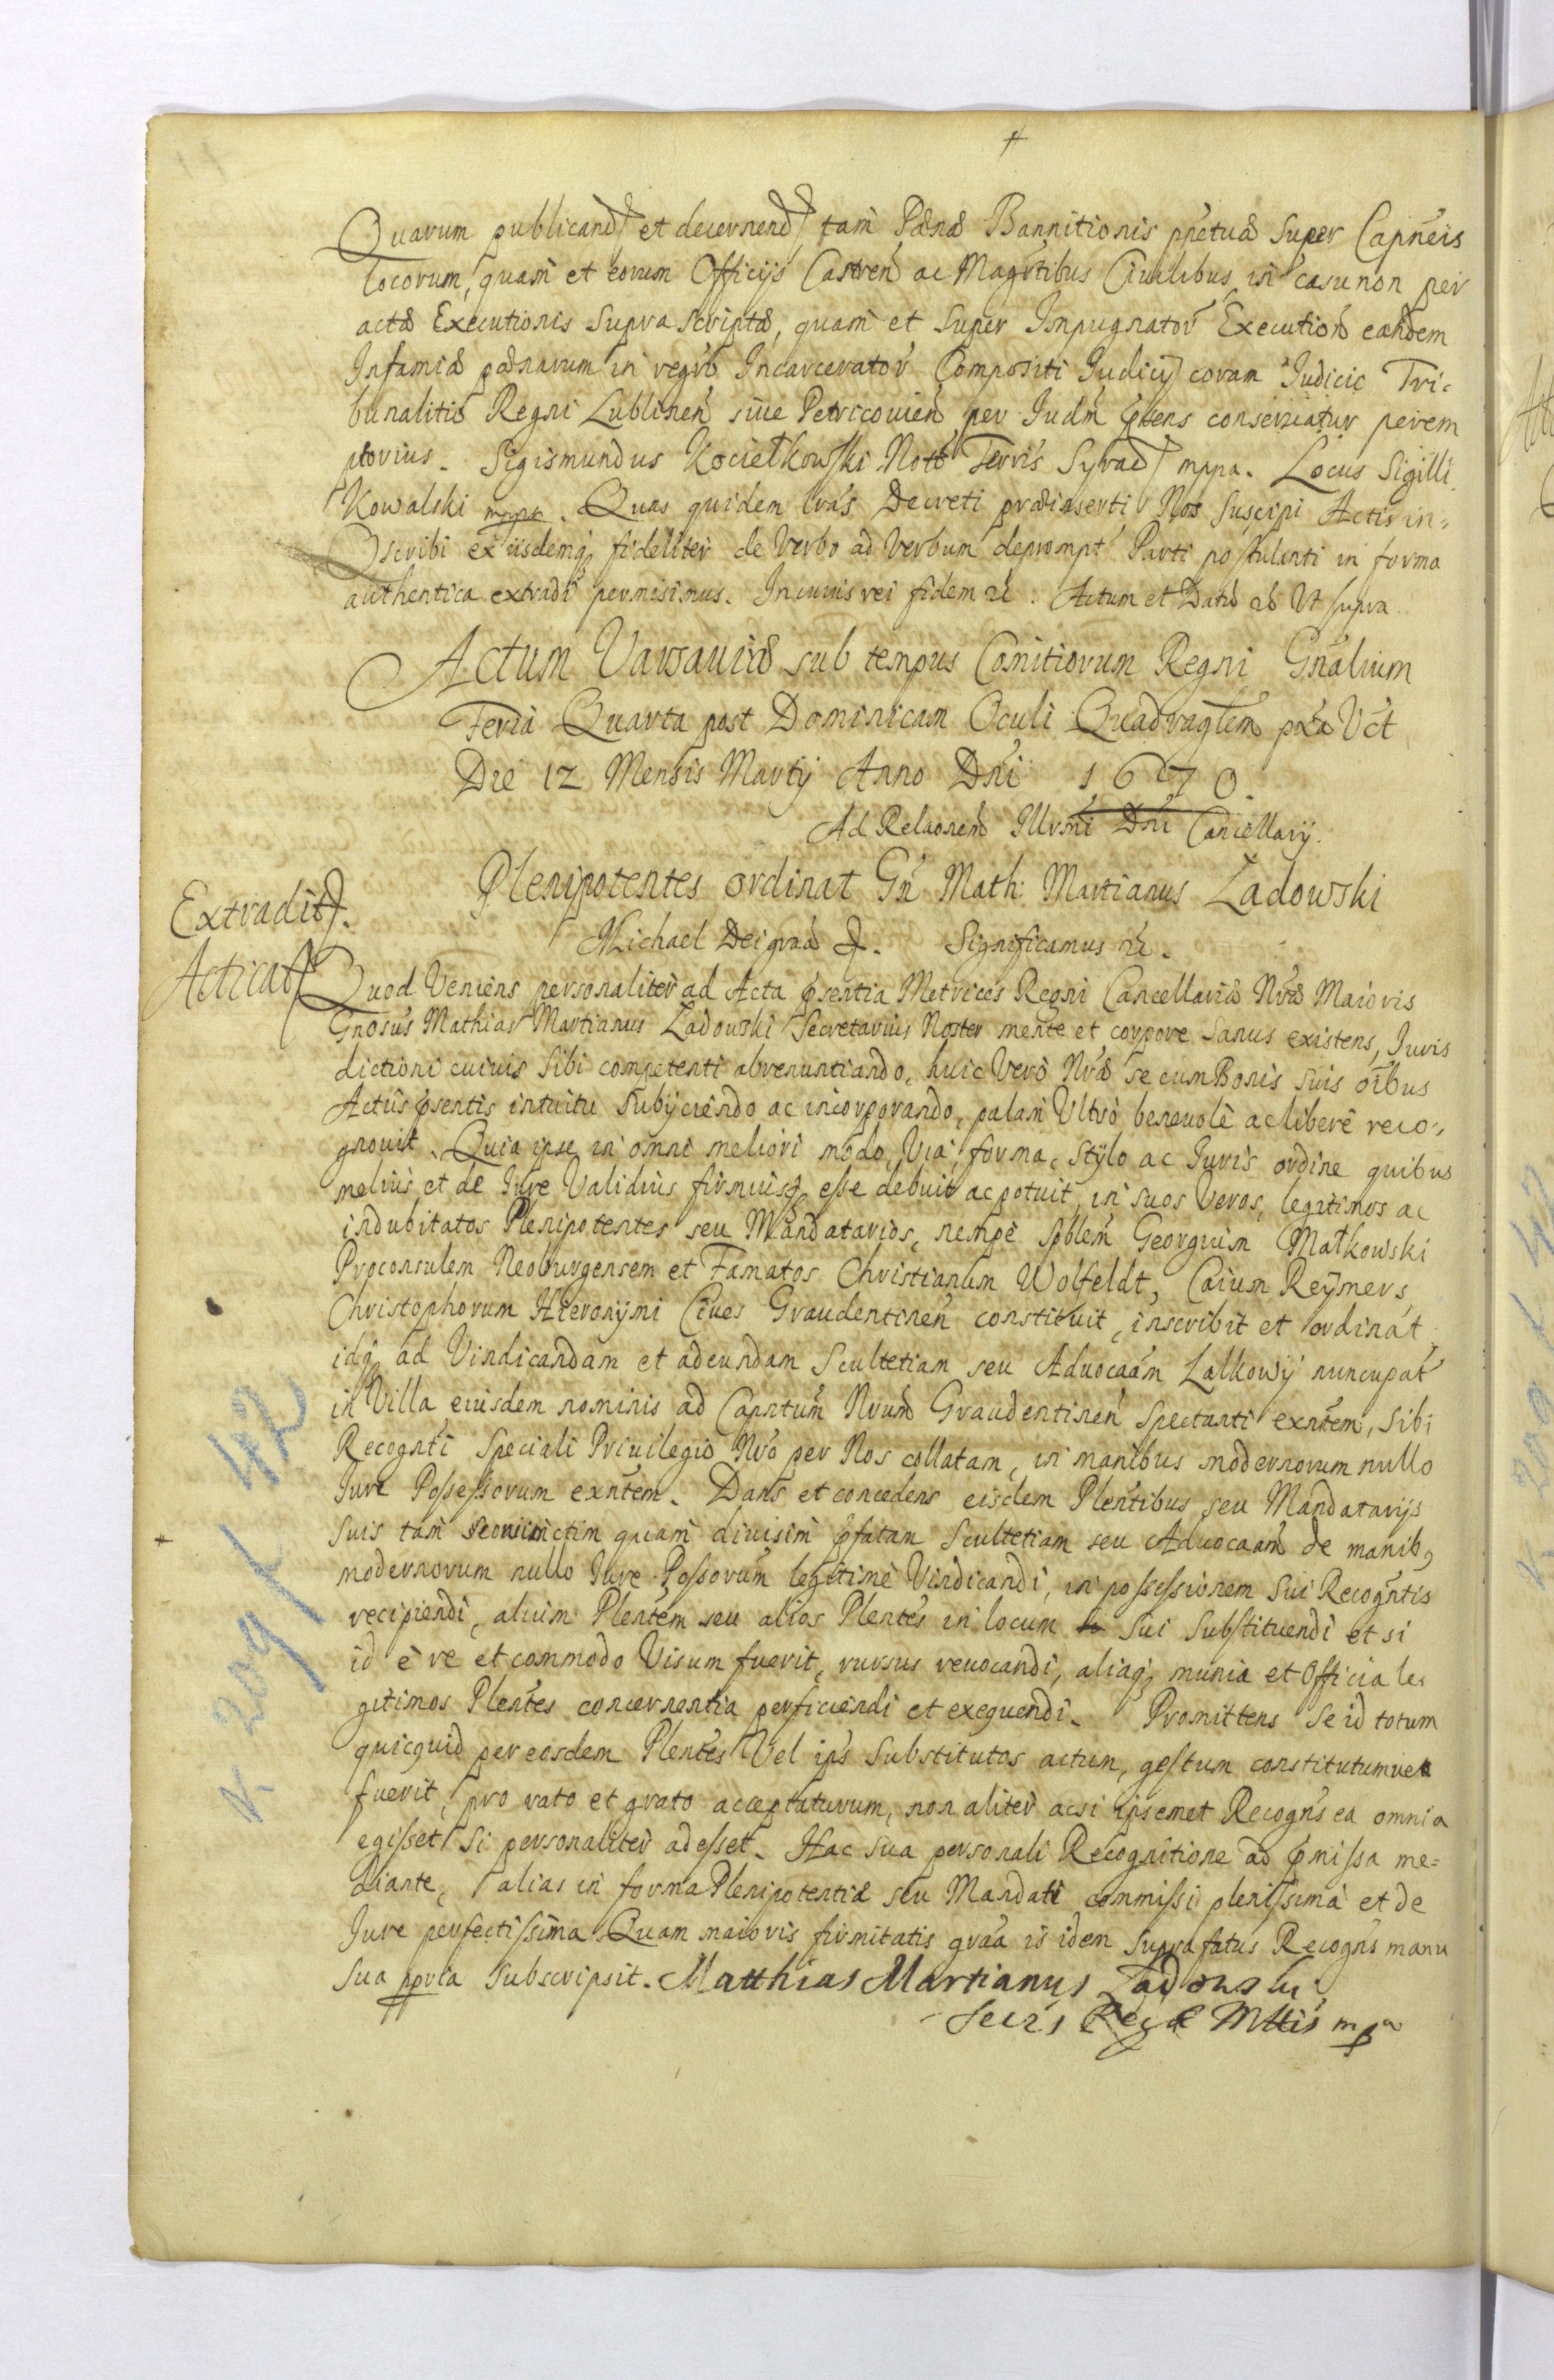 Quarum publicand et decernend tam Pænæ Bannitionis ppetuæ super Capneis
locorum, quam et eorum Officijs Castren ac Magrtibus Ciuilibus in casu non per
actæ Executionis supra scriptæ, quam et super Impugnator Execution eandem
Infamiæ pœnarum in regro Incarcerator Compositi Iudicij coram Iudicio Tri-
bunalitio Regni Lublinen siue Petricouien per Iudm pntens conseruatur perem
ptorius. Sigismundus Kociełkowski Nott Terris Syrad mppa. Locus Sigilli.
Kowalski mppa. Quas quidem lras Decreti præinserti Nos suscipi Actis in-
scribi ex iisdemq fideliter de Verbo ad Verbum deprompt Parti postulanti in forma
authentica extradi permisimus. In cuius rei fidem &. Actum et Datu ab Ut supra
Actum Varsauiæ sub tempus Comitiorum Regni Gnalium
Feria Quarta post Dominicam Oculi Quadragtem pxa Vct
Die 12 Mensis Martij Anno Dni 1670.
Ad Relaonem Illrmi Dni Cancellarij.
Plenipotentes ordinat Gn Math: Martianus Ladowski
Extradit.
Michael Dei graa &. Significamus &.
Acticat
Quod Veniens personaliter ad Acta psentia Metrices Regni Cancellariæ Nræ Maioris
Gnosus Mathias Martianus Ladowski Secretarius Noster mente et corpore sanus existens, Iuris
dictioni cuiuis sibi competenti abrenuntiando, huic Vero Nræ se cum Bonis suis oibus
Actus psentis intuitu subijciendo ac incorporando, palam Ultro beneuole ac libere reco-
gnouit. Quia ipse in omni meliori modo, Via, forma, stylo ac Iuris ordine quibus
melius et de Iure Validius firmiusq esse debuit ac potuit, in suos Veros, legitimos ac
indubitatos Plenipotentes seu Mandatarios, nempe spblem Georgium Małkowski
Proconsulem Neoburgensem et Famatos Christianum Wolfeldt, Caium Reymers,
Christophorum Hieronymi Ciues Graudentinen constituit, inscribit et ordinat
idq ad Vindicandam et adeundam Scultetiam seu Aduocaam Zalkowy nuncupat
in Villa eiusdem nominis ad Capntum Nrum Graudentinen spectanti exntem, Sibi
Recognti speciali Priuilegio Nro per Nos collatam, in manibus modernorum nullo
Iure Possessorum exntem. Dans et concedens eisdem Plentibus seu Mandatarijs
suis tam coniunctim quam diuisim pfatam Scultetiam seu Aduocaam de manib9
modernorum nullo Iure Possorum legitime Vindicandi, in possessionem sui Recogntis
recipiendi, alium Plentem seu alios Plentes in locum sui substituendi et si
id e re et commodo Visum fuerit, rursus reuocandi, aliaq munia et Officia le-
gitimos Plentes concernentia perficiendi et exequendi. Promittens se id totum
quicquid per eosdem Plentes Vel ips substitutos actum, gestum constitutumue
fuerit, pro rato et grato acceptaturum, non aliter acsi ipsemet Recogns ea omnia
egisset si personaliter adesset. Hac sua personali Recognitione ad pmissa me-
diante, alias in forma Plenipotentiæ seu Mandati commissi plenissima et de
Iure perfectissima Quam maioris firmitatis graa is idem suprafatus Recogns manu
sua ppria subscripsit. Matthias Martianus Ladowski
Secrs Reg Mttis mpa
k 209 k 42